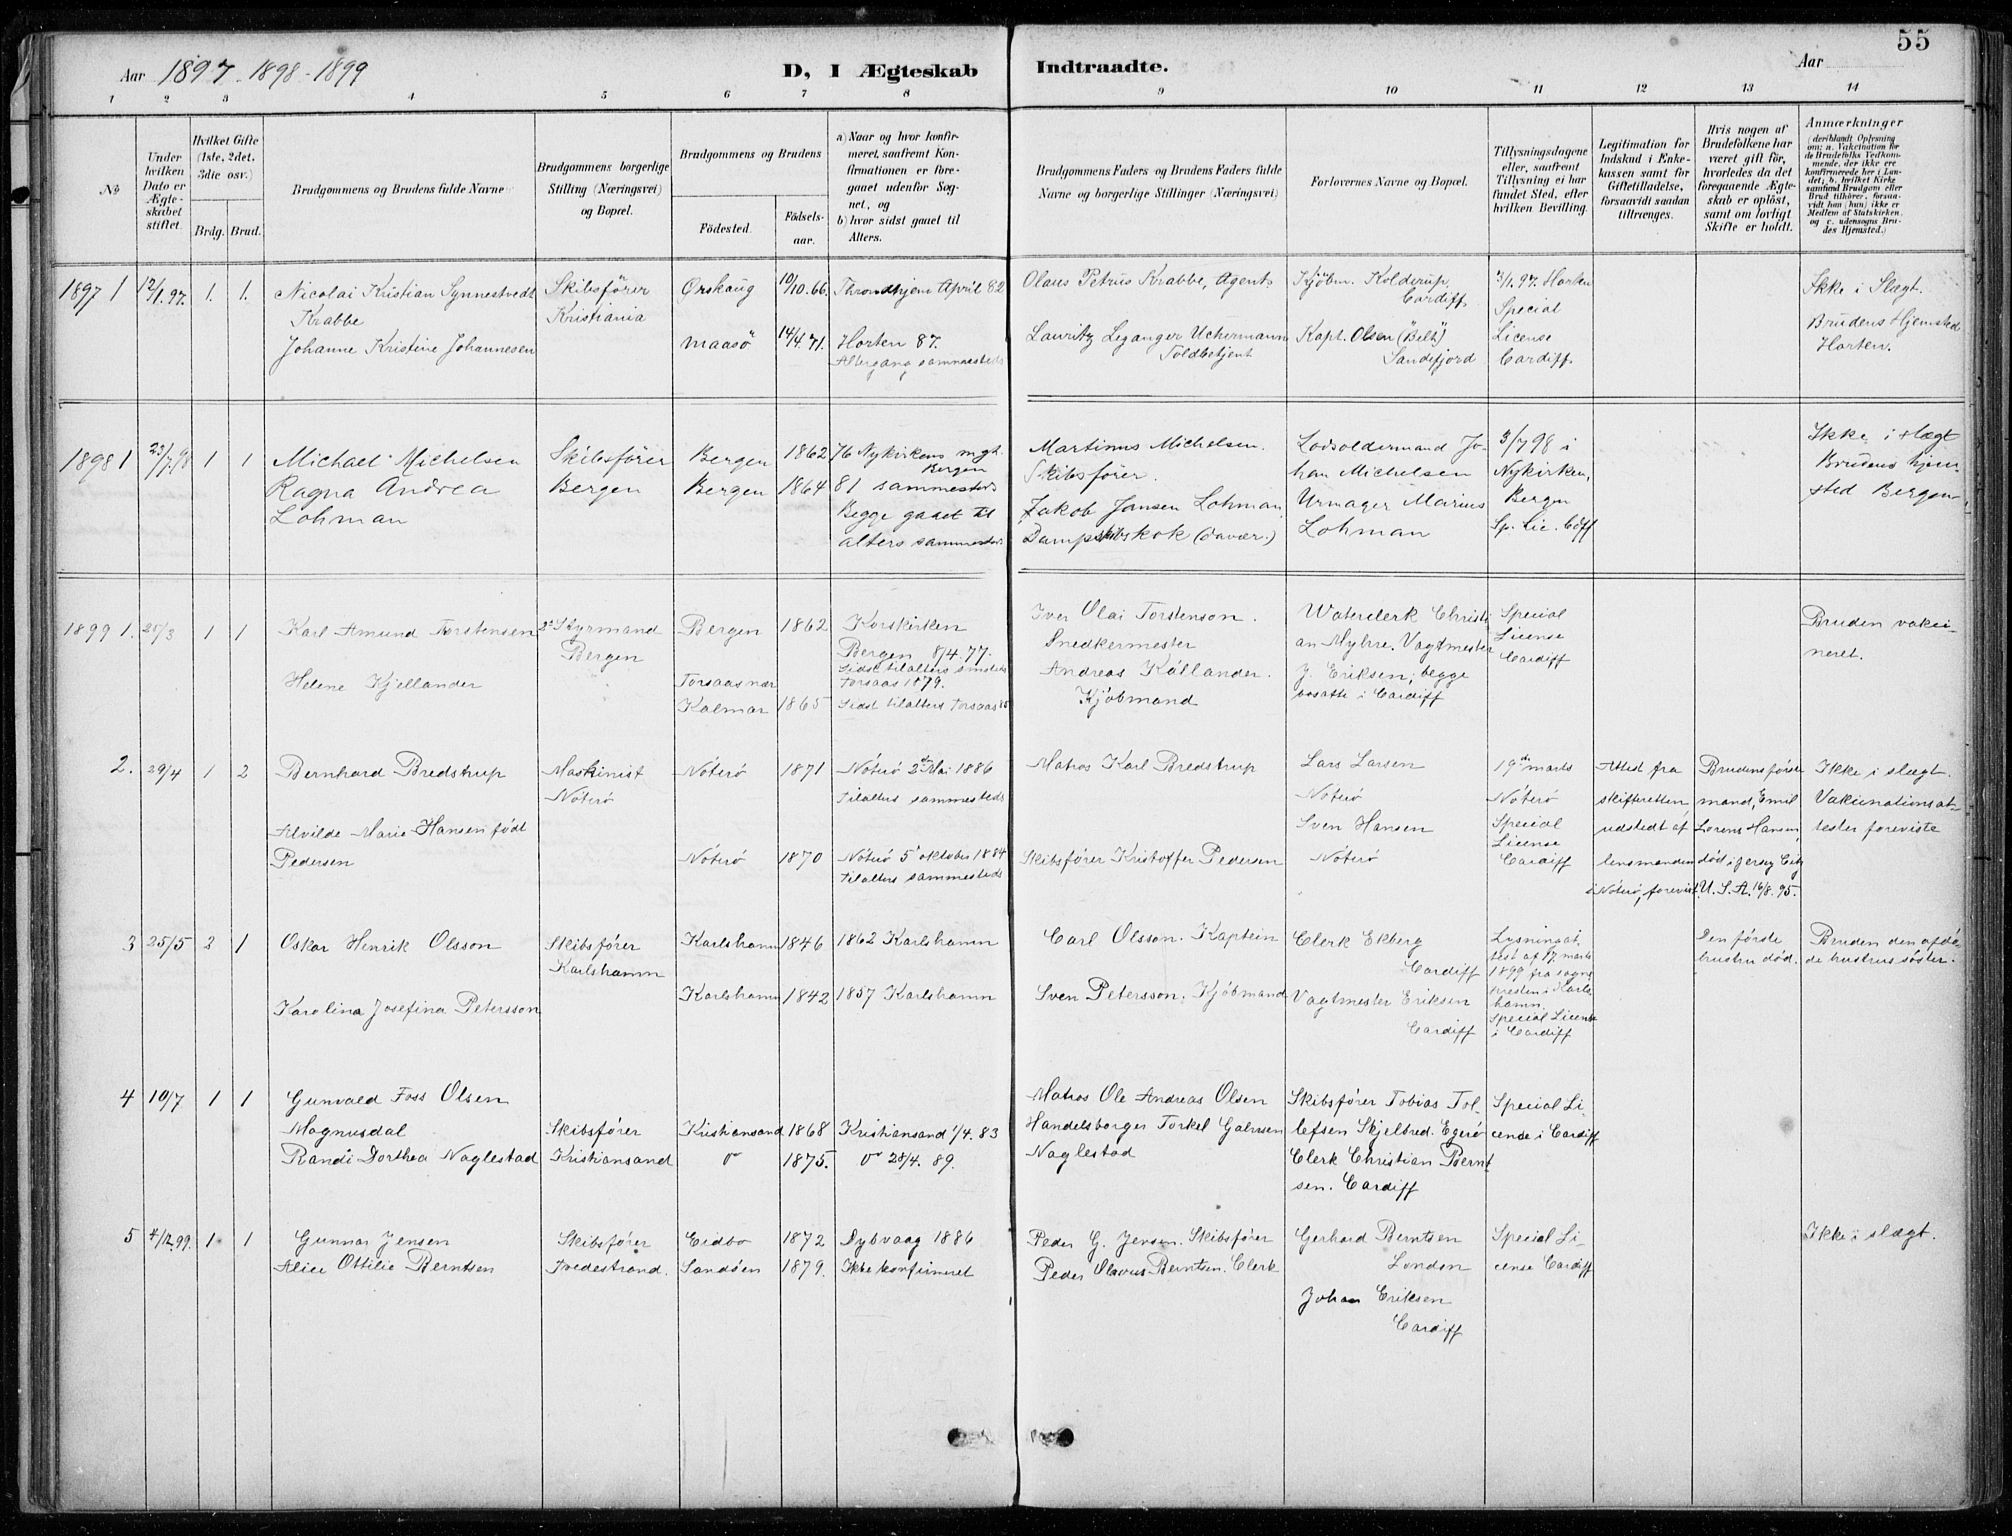 55
Aar 1897-1898-1899
D, I Ægteskab Indtraadte.
Aar
1 2 3 4 5 6 7 8 9 10 11 12 13 14
No
Under hvilken Dato er Ægteskabet stiftet.
Hvilket Gifte (1ste, 2det, 3die osv.)
Brdg. Brud.
Brudgommens og Brudens fulde Navne
Brudgommens borgerlige Stilling (Næringsvei) og Bopæl.
Brudgommens og Brudens
Födested.
Födselsaar.
a) Naar og hvor konfirmeret, saafremt Konfirmationen er foregaaet udenfor Sognet, og
b) hvor sidst gaaet til Alters.
Brudgommens Faders og Brudens Faders fulde Navne og borgerlige Stillinger (Næringsvei)
Forlovernes Navne og Bopæl.
Tillysningsdagene eller, saafremt Tillysning ei har fundet Sted, efter hvilken Bevilling.
Legitimation for Indskud i Enkekassen samt for Giftetilladelse, forsaavidt saadan tiltrænges.
Hvis nogen af Brudefolkene har været gift för, hvorledes da det foregaaende Ægteskab er oplöst, samt om lovligt Skifte er holdt.
Anmærkninger (deriblandt Oplysning om: a. Vakcination for de Brudefolks Vedkommende, der ikke ere konfirmerede her i Landet; b. hvilket Kirkesamfund Brudgom eller Brud tilhörer, forsaavidt han (hun) ikke er Medlem af Statskirken, og c. udensogns Brudes Hjemsted.)
1897 1 12/1.97. 1. 1. Nicolai Kristian Synnestvedt
Krabbe
Johanne Kristine Johannesen
Skibsfører
Kristiania
Ørskoug 10/10.66. Throndhjem April 82
Maasö 14/4.71. Horten 87.
Altergang sammesteds
Olaus Petrus Krabbe, Agent
Lauritz Leganger Uchermann
Toldbetjent
Kjöbm. Kolderup,
Cardiff.
Kapt. Olsen ("Belt")
Sandefjord
3/1.97. Horten
Special
License
Cardiff.
Ikke i Slægt.
Brudens Hjemsted
Horten.
1898 1 23/7.98 1 1 Michael Michelsen
Ragna Andrea
Lohman
Skibsfører
Bergen
Bergen 1862 76 Nykirkens mgh.
Bergen
Bergen 1864 81 sammesteds
Begge gaaet til
alters sammesteds
Martinus Michelsen.
Skibsfører.
Jakob Jansen Lohman.
Dampskibskok (davær.)
Lodsoldermand Jo-
han Michelsen
Urmager Marius
Lohman
3/7 98 i
Nykirken,
Bergen
Sp. Lic. Cdff
Ikke i slægt
Brudens hjem
sted Bergen
1899 1. 25/3 1 1 Karl Amund Torstensen
Helene Kjellander
2den Styrmand
Bergen
Bergen 1862 Korskirken
Bergen 8/4.77.
Sidst tilalters smsteds
Torsaas nær Torsaas 1879.
Kalmar 1865 Sidst tilalters Torsaas 85
Iver Olai Torstenson.
Snedkermester
Andreas Kållander.
Kjöbmand
Waterclerk Christi
an Myhre. Vagtmester
J. Eriksen, begge
bosatte i Cardiff
Special
License
Cardiff
Bruden vakci-
neret.
2. 29/4 1 2 Bernhard Bredstrup
Alvilde Marie Hansen født
Pedersen
Maskinist
Nøterø
Nøterø 1871 Nøterø 2den Mai 1886
Tilalters sammesteds
Nøterø 1870 Nøterø 5' oktober 1884
Tilalters sammesteds
Matros Karl Bredstrup
Skibsfører Kristoffer Pedersen
Lars Larsen
Nøterø
Sven Hansen
Nøterø
19de marts
Nøterø
Special
License
Cardiff
Attest fra
skifteretten
udstedt af
lensmanden
i Nøterø, forevist.
Brudens første
mand, Emil
Lorens Hansen,
død i Jersey City
U. S. A. 16/8.95.
Ikke i slægt.
Vakcinationsat-
tester foreviste
3 25/5 2 1 Oskar Henrik Olsson
Karolina Josefina Petersson
Skibsfører
Karlshamn
Karlshamn 1846 1862 Karlshamn
Karlshamn 1842 1857 Karlshamn
Carl Olsson. Kaptein
Sven Petersson. Kjøbmand
Clerk Ekberg
Cardiff
Vagtmester Eriksen
Cardiff
Lysningsat
test af 17. marts
1899 fra sogne
presten i Karls
hamn.
Special License
i Cardiff
Den første
hustru død.
Bruden den afdø-
de hustrus søster.
4 10/7 1 1 Gunvald Foss Olsen
Magnusdal
Randi Dorthea Naglestad
Skibsfører
Kristiansand
Kristiansand 1868 Kristiansand 1/4.83
" 1875. " 28/4.89.
Matros Ole Andreas Olsen
Handelsborger Torkel Gahrsen
Naglestad
Skibsfører Tobias Tol-
lefsen Skjelbred. Egerö
Clerk Christian Bernt
sen. Cardiff
Special Li-
cense i Cardiff
5 4/12.99. 1 1 Gunnar Jensen
Alice Ottilie Berntsen
Skibsfører
Tvedestrand.
Eidbo 1872 Dybvaag 1886
Sandøen 1879. Ikke konfirmeret
Peder G. Jensen. Skibsfører
Peder Olavus Berntsen. Clerk
Gerhard Berntsen
London
Johan Eriksen
Cardiff
Special Li-
cense Cardiff
Ikke i slægt.